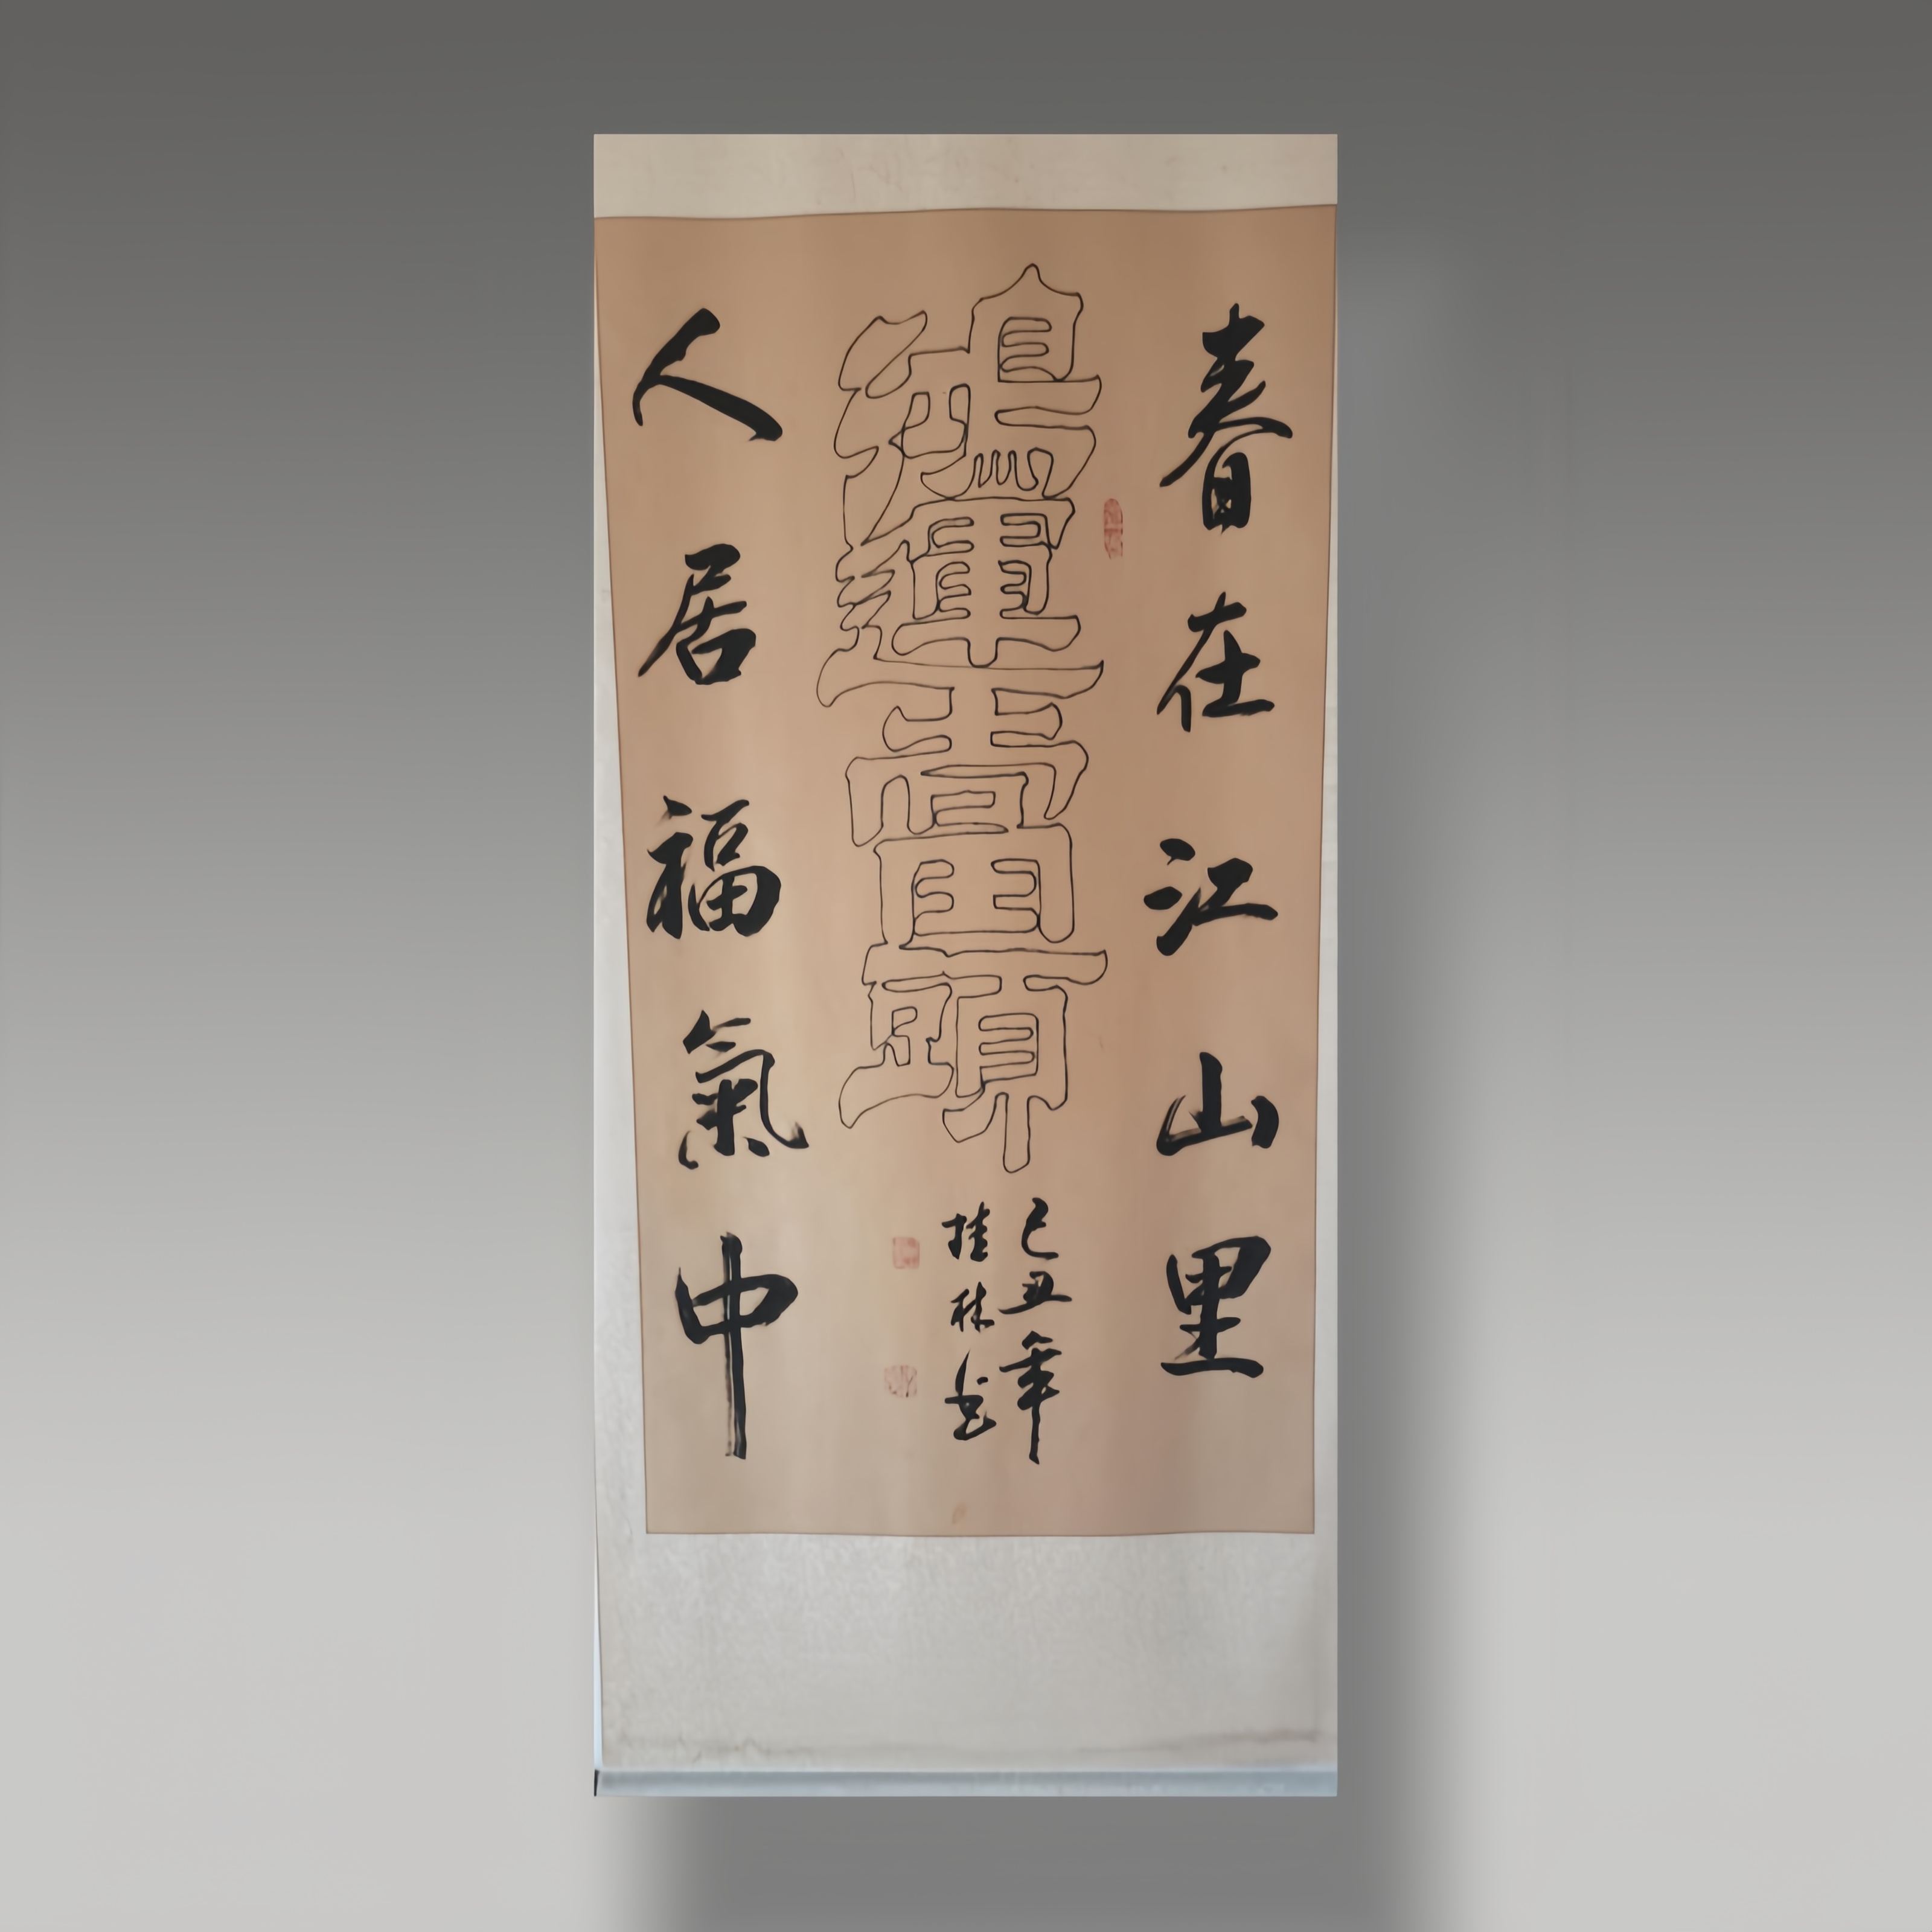 春在江山里
鴻運當頭
己丑年
桂林书
人居福氣中